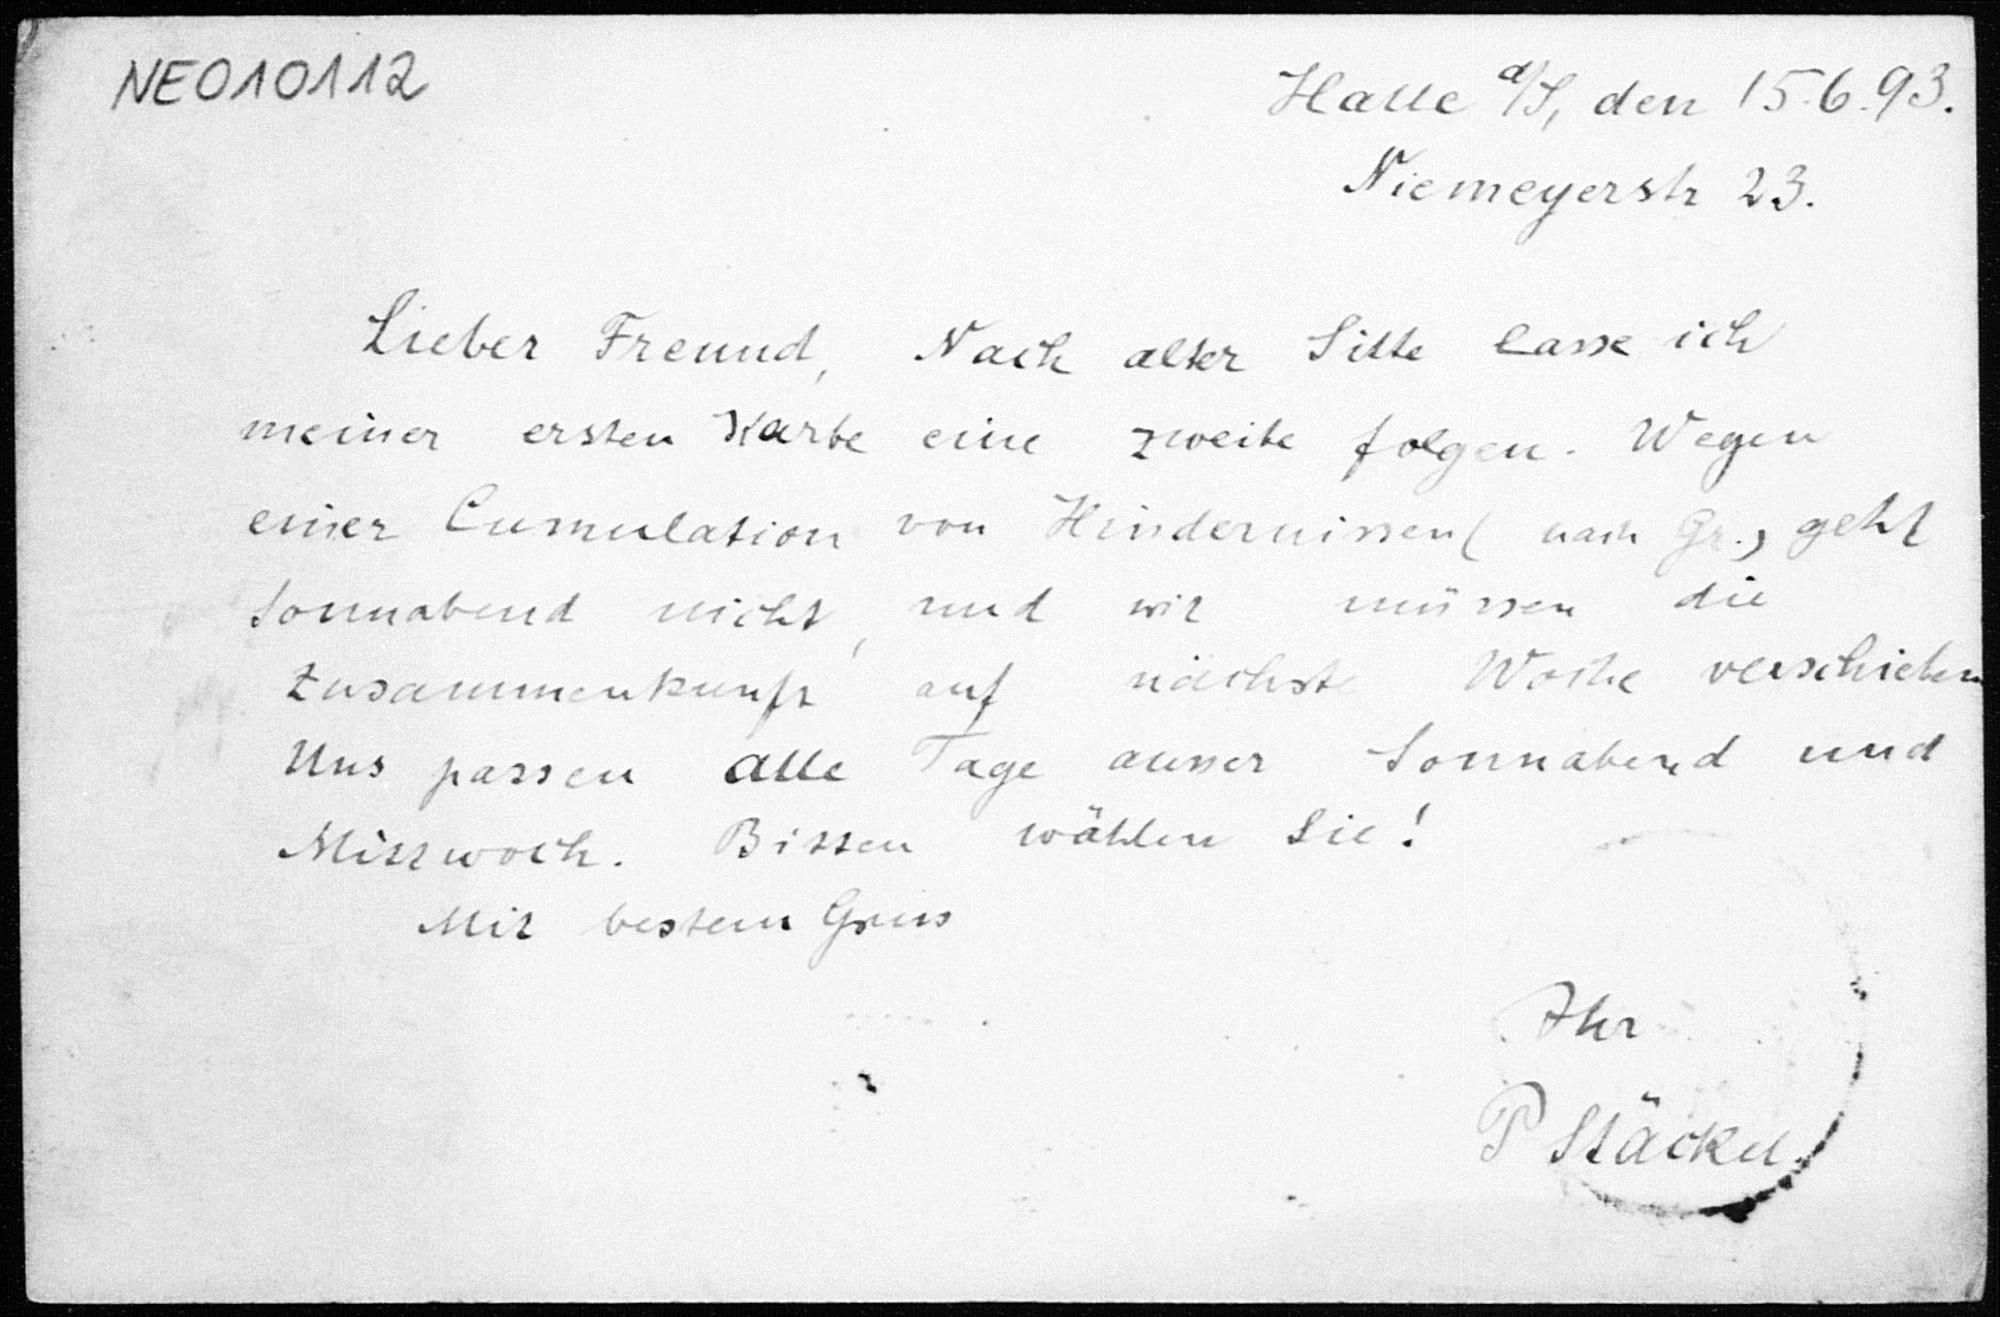 NE010112
Halle a/S, den 15.6.93.
Niemeyerstr 23.
Lieber Freund, Nach alter Sitte lasse ich
meiner ersten Karte eine zweite folgen. Wegen
einer Cumulation von Hindernissen (nach Gr.) geht
Sonnabend nicht, und wir müssen die
Zusammenkunft auf nächste Woche verschieben
Uns passen alle Tage ausser Sonnabend und
Mittwoch. Bitten wählen Sie!
Mit bestem Gruss
Ihr
P Stäckel.